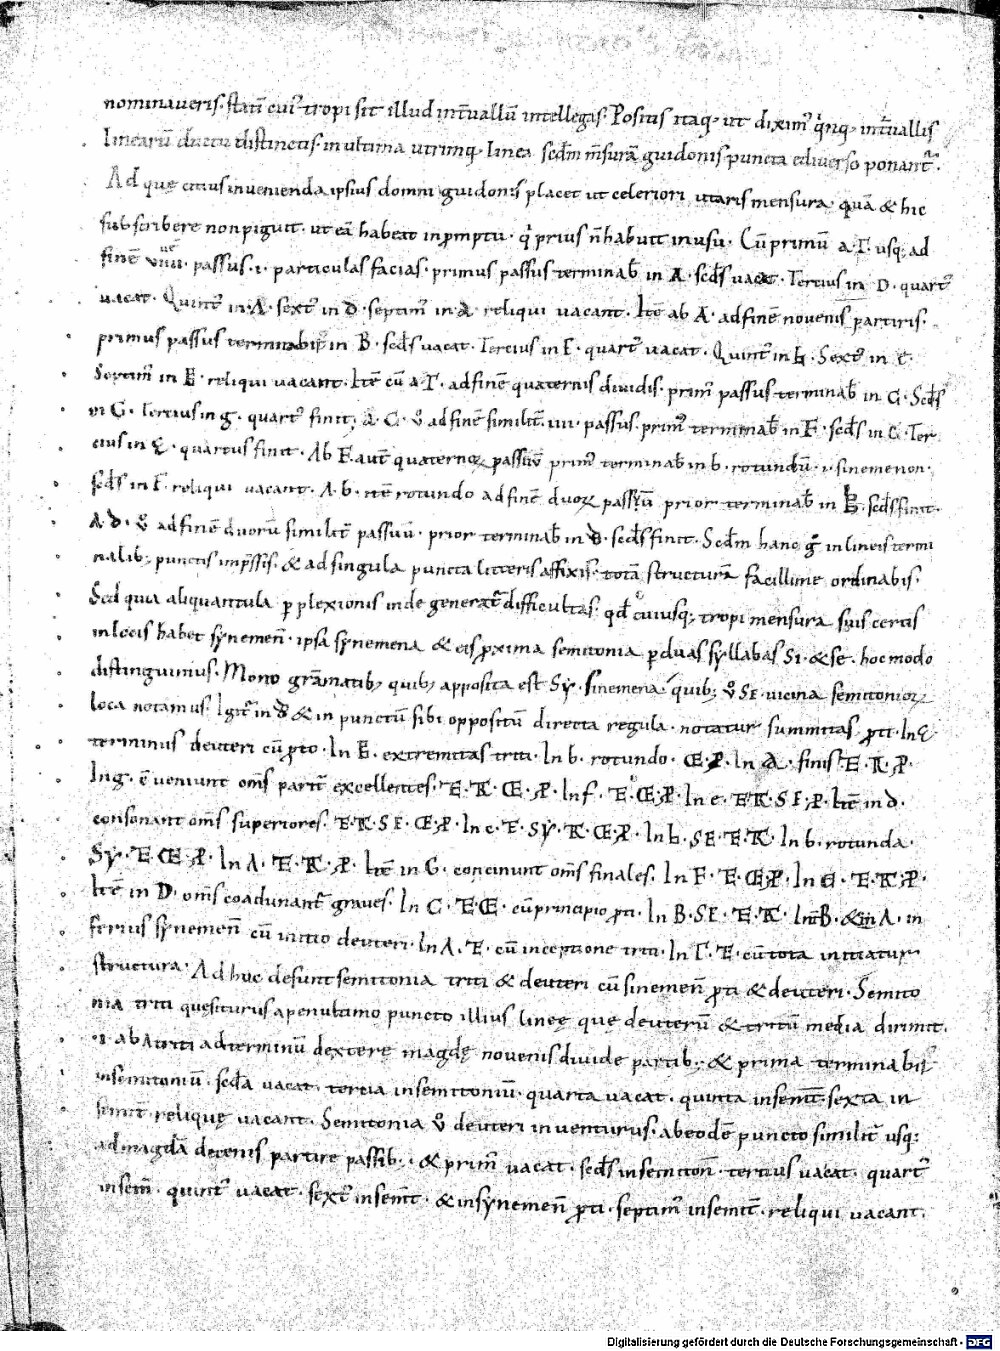 nominaveris. statī cui᷒ tropi sit illud int̄vallū intellegas. Positis itaq; ut dixim᷒ q̇nq; int̄vallis
linearū ductu distinctis. in ultima utrimq; linea. scd̄m m̄surā guidonis puncta ediverso ponant᷒.
Ad quę citius invenienda ipsius domni guidonis placet ut celeriori utaris mensura. quā & hic
subscribere non piguit. ut eā habeat in promptu. q̇ prius n̄ habuit in usu. Cū primū a. Γ. usq; ad
finē passus. i. particulas facias. primus passus terminab̄ in A. scd̄s vacat. Tertius in D. quart᷒
vacat. Quint᷒ in. A. sext᷒ in D. septim᷒ in. a. reliqui vacant. Itē ab A. ad finē novenis partiris.
primus passus terminabit᷒ in B. scd̄s vacat. Tercius in E. quart᷒ vacat. Quint᷒ in ♮. Sext᷒ in
Septim᷒ in E. reliqui vacant. Itē cū a. Γ. ad finē quaternis dividis. prim᷒ passus terminab̄ in C. Scd̄s
in G. Tertius in g. quart᷒ finit; A. C. v̊ ad finē similit̄. iiii. passus. prim᷒ terminab̄ in F. scd̄s in C. Ter
cius in quartus finit. Ab F. aut̄ quaternoꝝ passuū prim᷒ terminab̄ in b. rotundū. i. sinemenon.
scd̄s in F. reliqui vacant. A. b. itē rotundo ad finē duoꝝ passuū prior terminab̄ in scd̄s finit.
A. v̊ ad finē duorū similit̄ passuū. prior terminab̄ in scd̄s finit. Scd̄m hanc g̊ in lineis termi
nalib; punctis imp̄ssis. & ad singula puncta litteris affixis. totā structurā facillime ordinabis.
Sed quia aliquantula p̱ plexionis inde generat᷒ difficultas. qd̄ cuiusq; tropi mensura suis certis
in locis habet synemen̄. ipsa synemena & eis ꝓxima semitonia p̱ duas syllabas SI. & se. hoc modo
distinguimus. Mono grāmatib; quib; apposita est Sy. sinemena. quib; v̊ SE. vicina semitonioꝝ
loca notamus. Igit᷒ in & in punctū sibi oppositū directa regula. notatur summitas ꝓti. In
terminus deuteri cū ꝓto. In extremitas triti. In b. rotundo. In a. finis
In g. eveniunt om̄s parit̄ excellentes. In f. In e. Itē in d.
consonant om̄s superiores. In c. In ♮. In b. rotunda.
Sy. In A. Itē in G. concinunt om̄s finales. In F. In
Itē in D. om̄s coadunant᷒ graves. In C. cū principio ꝓti. In B. SE. & in A. in
ferius synemen̄ cū initio deuteri. In A. cū inceptione triti. In Γ. cū tota initiatur
structura. Ad hoc desunt semitonia triti & deuteri cū sinemen̄ ꝓti & deuteri. Semito
nia triti quesiturus a penultimo puncto illius lineę que deuterū & tritū media dirimit.
.i. ab A triti ad terminū dexterę magdę novenis divide partib; & prima terminabit᷒
in semitoniū. scd̄a vacat. tercia in semitoniū. quarta vacat. quinta in semit̄. sexta in
semit̄. reliquę vacant. Semitonia v̊ deuteri inventurus. ab eodē puncto similit̄ usq;
ad magdā decenis partire passib; & prim᷒ vacat. scd̄s in semiton̄. tertius vacat. quart᷒
in sem̄. quint᷒ vacat. sext᷒ in semit̄. & in synemen̄ ꝓti. septim᷒ in semit̄. reliqui vacant.
Digitalisierung gefördert durch die Deutsche Forschungsgemeinschaft - DFG